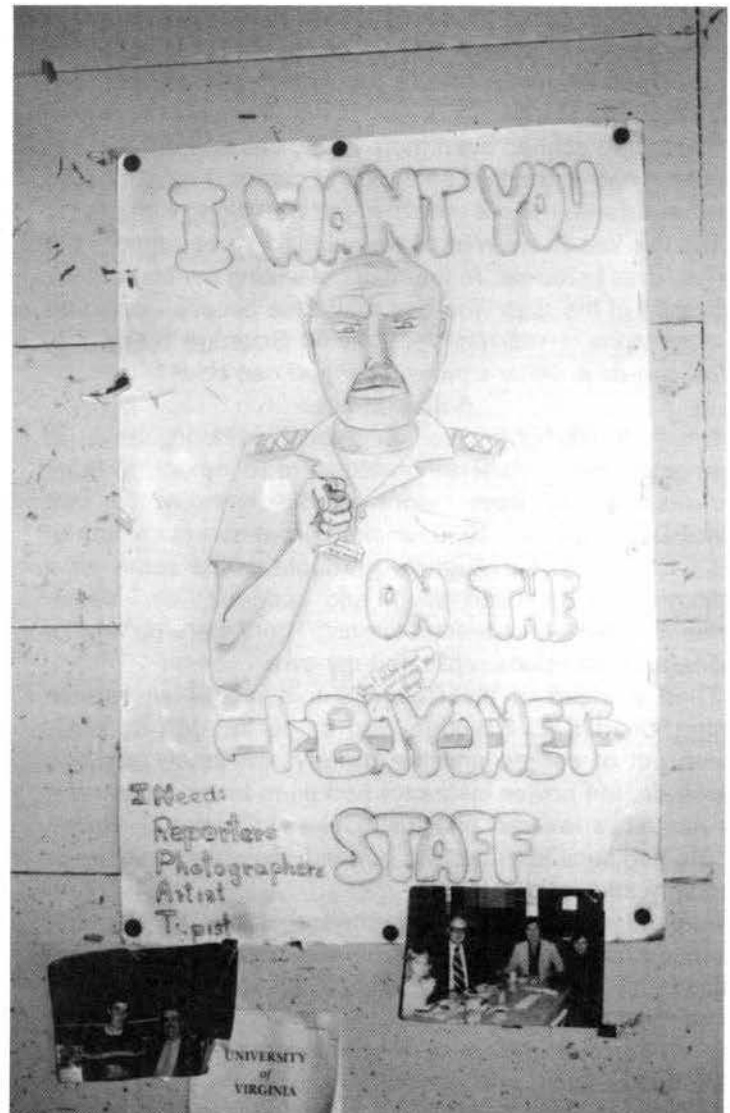 I WANT YOU
ON THE
BAYONET
STAFF
I Need:
Reporters
Photographers
Artist
Typist
UNIVERSITY
of
VIRGINIA